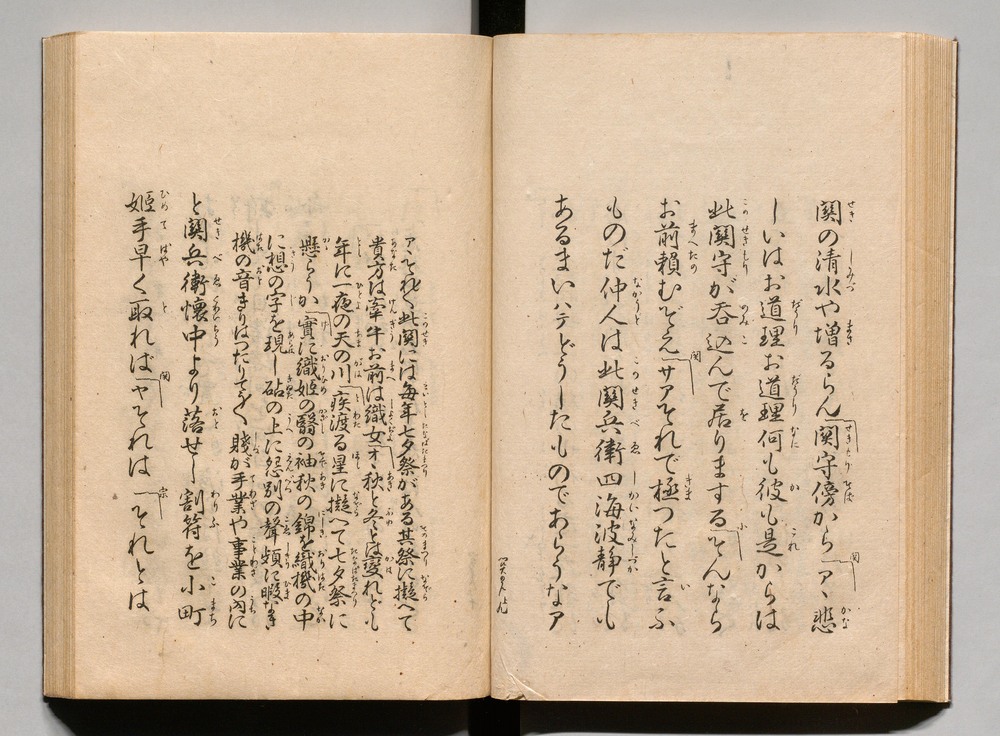 関の清水や増るらん関守傍からアヽ悲
しいはお道理お道理何も彼も是からは
此関守が呑込んで居りまするそんなら
お前頼むぞえサアそれで極つたと言ふ
ものだ仲人は此関兵衛四海波静でも
あるまいハテどうしたものであらうなア
アヽそれ〳〵此関には毎年七夕祭がある其祭に擬へて
貴方は牽牛お前は織女オヽ秋と冬とは変れども
年に一夜の天の川疾渡る星に擬へて七夕祭に
懸らうか実に織姫の翳の袖秋の錦を織機の中
に想の字を現し砧の上に怨別の声頻に暇なき
機の音きりはつたりてん〳〵賤が手業や事業の内に
と関兵衛懐中より落せし割符を小町
姫手早く取ればヤそれはそれとは